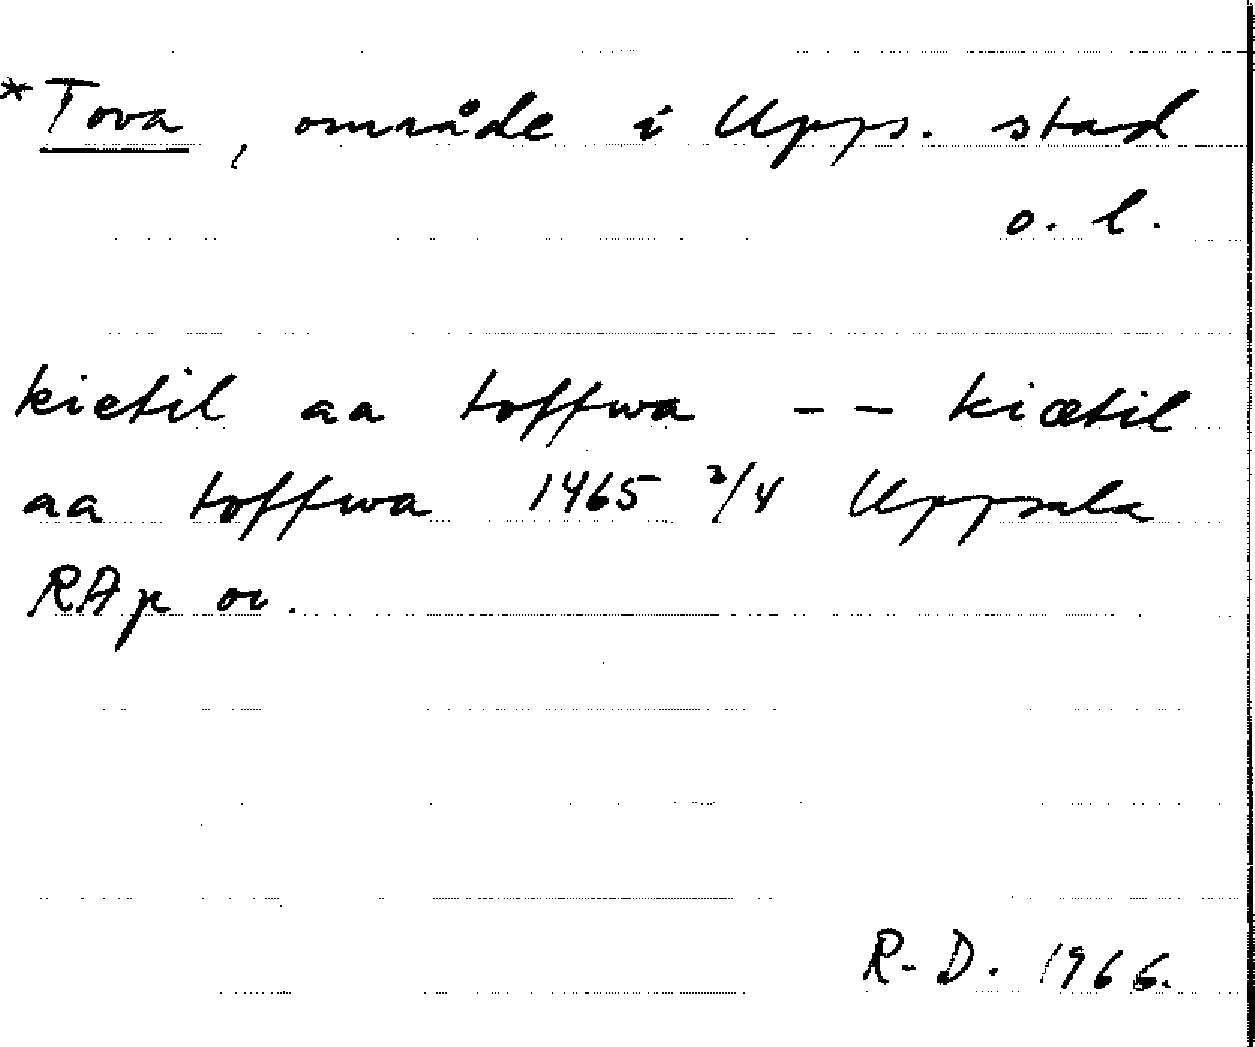 *Tova, område i Upps. stad
o. l.
kietil aa toffwa -- kiætil
aa toffwa 1465 3/4 Uppsala
RAp or.
R-D. 1966.